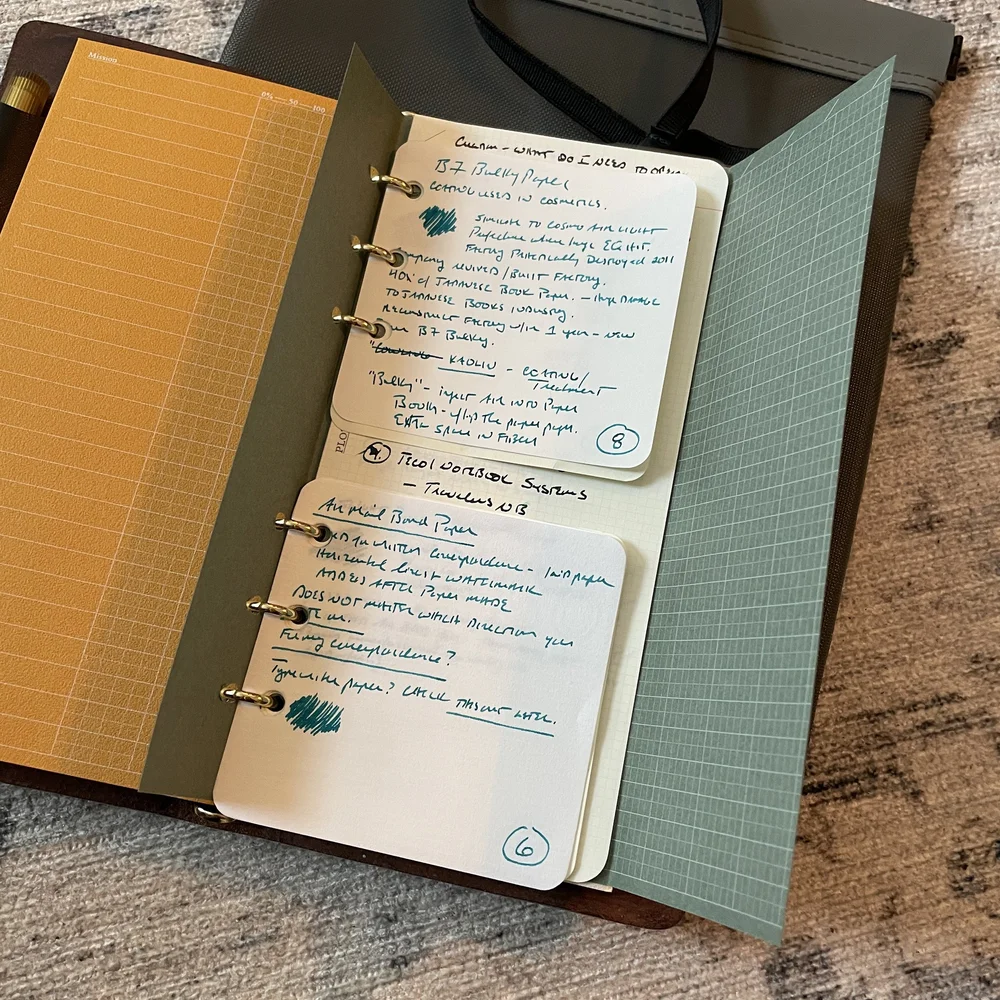 Mission
0% 50 100
- WHAT DO I NEED TO
B7 Bulky Paper
COATING USED IN COSMETICS.
SIMILAR TO COSMO AIR LIGHT
Production where huge EQ HIT.
FACTORY PRACTICALLY DESTROYED 2011
Company REVIVED/BUILT FACTORY.
40% of JAPANESE BOOK PAPER. - Huge DAMAGE
TO JAPANESE BOOKS INDUSTRY.
RECONSTRUCT FACTORY w/in 1 year - NEW
B7 Bulky.
KAOLIN - COATING/
Treatment
"Bulky" - inject AIR INTO PAPER
Books - the paper
EXTRA SPACE IN FIBER
8
PLO
TECO1 NOTEBOOK SYSTEMS
- Travelers NB
Air Mail Bond Paper
for WRITTEN Correspondence - laid paper
Horizontal lines WATERMARK
ADDED AFTER Paper MADE
DOES NOT MATTER WHICH DIRECTION you
For my correspondence?
Typewriter paper? CHECK THIS OUT LATER.
6